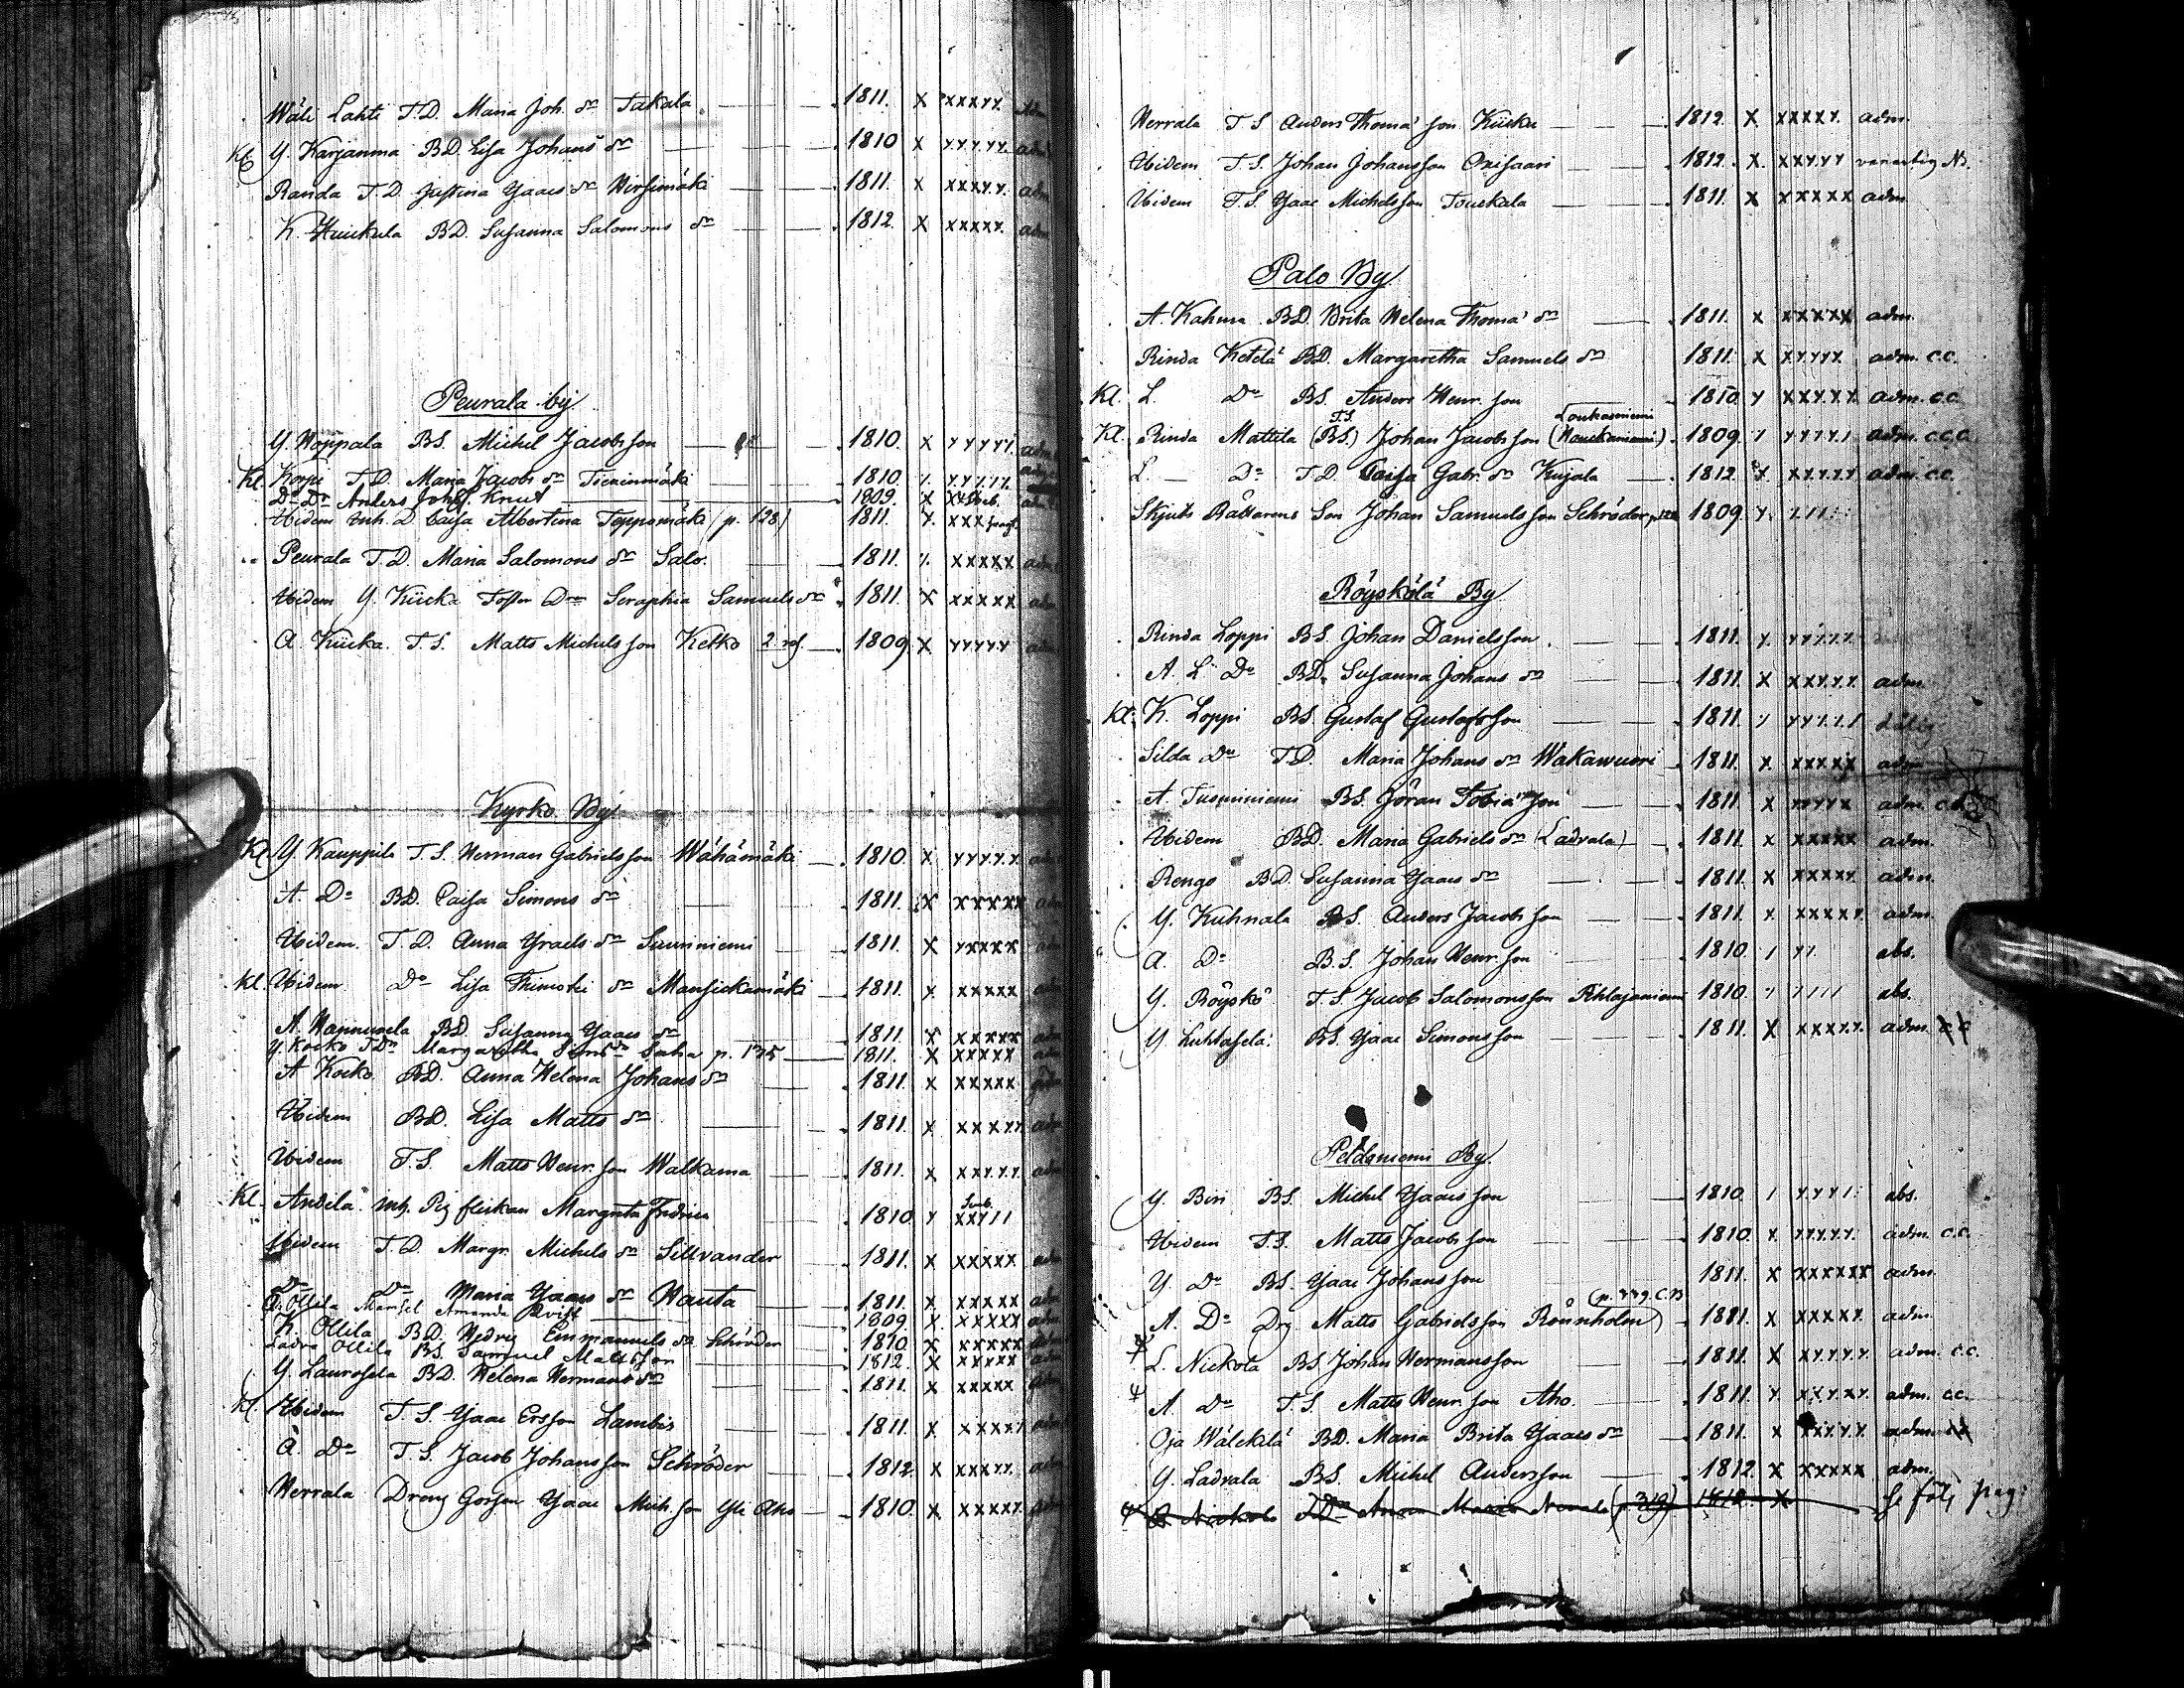 Wäli Lahti T.D. Maria Joh. dr Takala 1811. X XXXXX adm
Kl Y. Karjanma BD. Lisa Johans dr 1810 X XXXXX adm
Randa T.D. Justina Ysaacs dr Wirsimäki 1811. X XXXXX adm
K. Huickula BD. Susanna Salomons dr 1812. X XXXXX adm
Peurala by.
Y. Noppala BS. Michel Jacobsson 1810. X XXXXX adm
Kl. Korpi T.D. Maria Jacobs dr 1810. X XXXXX adm
Do Dr Anders Johss Knut 1809. X
Ibidem Inh. D. Caisa Albertina Toppomäki (p. 128) 1811. X XXX
Peurala T.D. Maria Salomons dr Salo. 1811. X XXXXX adm
Ibidem Y. Kiicka Foster Dr Seraphia Samuels dr 1811. X XXXXX adm
A. Kiicka. T.S. Matts Michelsson Ketko 1809 X XXXXX adm
Kyrko By
Kl. Y. Kauppila T.S. Herman Gabrielsson Wähämäki 1810. X XXXXX adm
A. Do BD. Caisa Simons dr 1811. X XXXXX adm
Ibidem. T.D. Anna Ysraels dr Suuriniemi 1811. X XXXXX adm
Kl. Ibidem Do Lisa Thimothei dr Mansickamäki 1811. X XXXXX adm
A. BD. Susanna Ysaacs dr 1811. X XXXXX adm
Y. Kocko TDr Margaretha Saha p. 135 1811. X XXXXX adm
A Kocko BD. Anna Helena Johans dr 1811. X XXXXX
Ibidem BD. Lisa Matts dr 1811. X XXXXX adm
Ibidem T.S. Matts Henr. son Walkama 1811. X XXXXX adm
Kl. Andela Inh. Pig flickan Margreta Fredrica 1810 X
Ibidem T.D. Margr. Michels dr Sillvander 1811. X XXXXX adm
Do Do Maria Ysaacs dr Hauta 1811. X XXXXX adm
Ollila Mamsel Amanda 1809. X. XXXXX adm
K. Ollila BD. Hedvig Emmanuels dr Schröder 1810. X XXXXX adm
Ladva Ollila BS. Samuel Mattsson 1812. X XXXXX adm
Y. Laurosela BD. Helena Hermans dr 1811. X XXXXX adm
Kl. Ibidem T.S. Ysaac Ersson Lambis 1811. X XXXXX adm
A. Do T.S. Jacob Johansson Schröder 1812 X XXXXX adm
Herrala Dreng Gossen Ysaac Mich. son Yli Aho 1810. X XXXXX adm
Herrala T.S Anders Thomæ son Kiicka 1812. X. XXXXX adm.
Ibidem T.S. Johan Johansson Orisaari 1812. X. XXXXX
Ibidem T.S. Ysaac Michelsson Touckala 1811. X XXXXX adm.
Palo By
A. Kahma BD. Brita Helena Thomæ dr 1811. X XXXXX adm.
Rinda Ketelä BD. Margaretha Samuels dr 1811. X XXXXX adm. c.c.
Kl. L. Do BS. Anders Henr. son 1810 X XXXXX adm. c.c.
T.S. Loukasniemi
Kl. Rinda Mattila (BS.) Johan Jacobsson (Hauckaniemi). 1809. adm. c.c.c
L. Do T.D. Caisa Gabr. dr Kujala 1812. X. XXXXX adm. c.c.
Skjuts Rättarens Son Johan Samuelsson Schröder 1809. X.
Röyskölä By
Rinda Loppi BS. Johan Danielsson. 1811. X. XXXXX
A. L. Do BD. Susanna Johans dr 1811. X XXXXX adm.
Kl. K. Loppi BS. Gustaf Gustafsson 1811. dålig
Silda Do T.D. Maria Johans dr Wakawuori 1811. X. XXXXX adm
A. Tusminiemi BS. Jöran Tobiæ son 1811. X XXXXX adm. c.c.
Ibidem BD. Maria Gabriels dr (Ladvala) 1811. X XXXXX adm.
Rengo BD. Susanna Ysaacs dr 1811. X XXXXX adm.
Y. Kuhnala BS. Anders Jacobsson 1811. X XXXXX adm.
A. Do BS. Johan Henr. son 1810. abs.
Y. Röyskö T.S. Jacob Salomonsson Pihlajaniemi 1810. abs.
Y. Luhtasela. BS. Ysaac Simonsson 1811. X XXXXX adm.
Peldoniemi By.
Y. Biri BS. Michel Ysaacsson 1810. abs.
Ibidem T.S. Matts Jacobsson 1810. X. XXXXX adm. c.c.
Y. Do BS. Ysaac Johansson 1811. X XXXXX adm.
A. Do Drg Matts Gabrielsson Rönnholm) 1811. X XXXXX adm.
L. Nickola BS Johan Hermansson 1811. X XXXXX adm. c.c.
A. Do T.S. Matts Henr. son Aho. 1811. X XXXXX adm. c.c.
Oja Wälckilä BD. Maria Brita Ysaacs dr 1811. X XXXXX adm.
Y. Ladvala BS. Michel Andersson 1812 X XXXXX adm.
Nickola TDr Anna Maria (p. 319) 1810. X se följ pag: